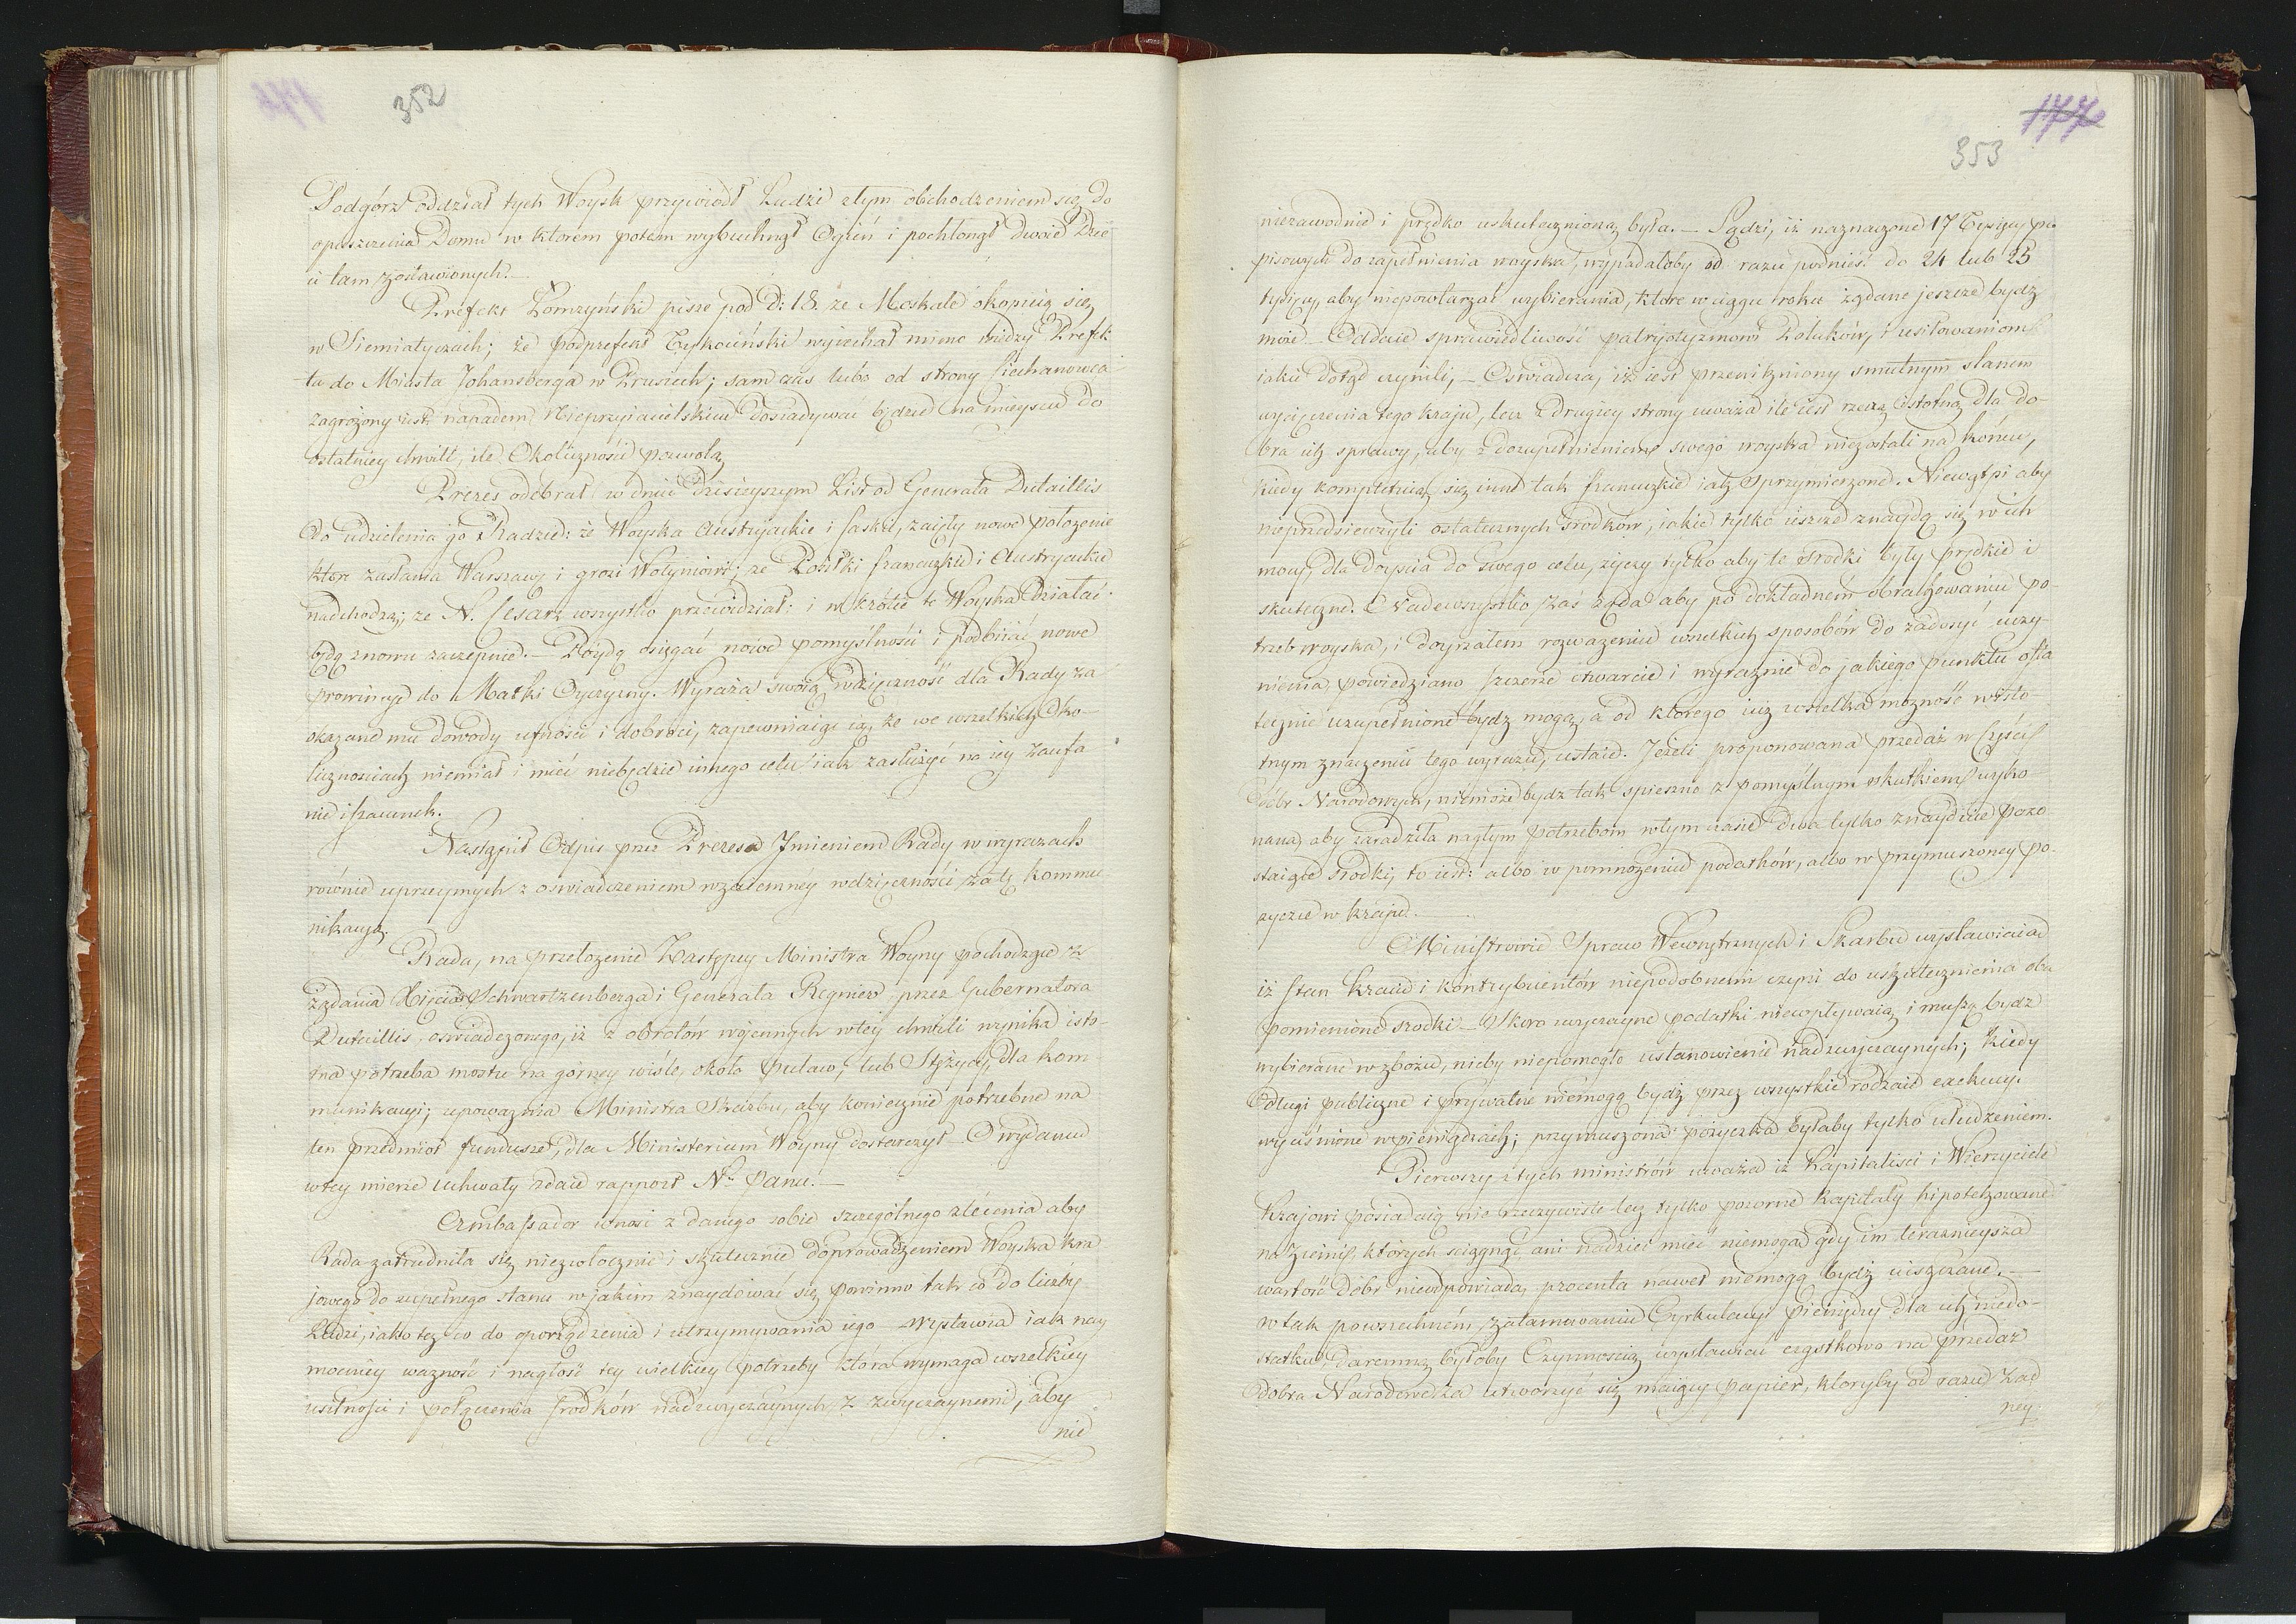 352
Podgórz oddział tych Woysk przywiodł Ludzi złym obchodzeniem się do
opuszczenia Domu w ktorem potem wybuchnął Ogień i pochłonął dwoie Dzie
ci tam zostawionych. —
Prefekt Łomzyński pisze pod D: 18. że Moskale okopuią się
w Siemiatyczach; że podprefekt Tykociński wyiechał mimo wiedzy Prefek
ta do Miasta Johansberga w Prusiech; sam zas lubo od strony Ciechanowca
zagrożony iest napadem Nieprzyiacielskim dosiadywać będzie na mieyscu do
ostatniey chwili, ile Okoliczności pozwolą
Prezes odebrał w dniu dzisieyszym List od Generała Dutaillis
do udzielenia go Radzie: że Woyska Austryackie i saskie, zaięły nowe położenie
ktore zasłania Warszawę i grozi Wołyniowi; że Posiłki francuzkie i Austryackie
nadchodzą; że N. Cesarz wszystko przewidział: i w krótce te Woyska Działać
będą znowu zaczepnie. — Póydą osięgać nowe pomyślności i podbiiać nowe
prowincye do Matki Oyczyzny. Wyraża swoią wdzięczność dla Rady za
okazane mu dowody ufności i dobroci, zapewniaiąc ią, że we wszelkich oko-
licznosciach niemiał i mieć niebędzie innego celu iak zasłużyć na iey zaufa
nie i szacunek.
Nastąpił Odpis przez Prezesa Jmieniem Rady w wyrazach
równie uprzeymych z oswiadczeniem wzaiemney wdzięczności za tę kommu
nikacyą.
Rada, na przełożenie Zastępcy Ministra Woyny pochodzące z
żądania Xięcia Schwartzenberga i Generała Regnier przez Gubernatora
Dutaillis oswiadczonego, iż z obrotów woiennych w tey chwili wynika isto-
tna potrzeba mostu na górney wiśle, około Puław, lub Stężycy, dla kom
munikacyi; upoważnia Ministra Skarbu, aby koniecznie potrzebne na
ten przedmiot fundusze, dla Ministerium Woyny dostarczył — O wydaniu
w tey mierze uchwały zdaie rapport N. Panu. —
Ambassador wnosi z danego sobie szczególnego zlécenia aby
Rada zatrudniła się niezwłocznie i skutecznie doprowadzeniem Woyska kra
jowego do zupełnego stanu w jakim znaydować się powinno tak co do liczby
Ludzi, iako też co do oporządzenia i utrzymywania iego — wystawia iak nay
mocniey ważność i nagłość tey wielkiey potrzeby która wymaga wszelkiey
usilności i połączenia srodków nadzwyczaynych z zwyczaynemi, aby
nie
177
353
niezawodnie i prędko uskutecznioną była. — Sądzi, iż naznaczone 17 Tysięcy po
pisowych do zapełnienia woyska, wypadałoby od razu podnieść do 24 lub 25
tysięcy, aby niepowtarzał wybierania, ktore w ciągu roku żądane jeszcze bydź
może — Oddaie sprawiedliwość patryotyzmowi Polaków, i usiłowaniom
iakie dotąd czynili, — Oswiadcza, iż iest przenikniony smutnym stanem
wycięczenia tego kraju, lecz z drugiey strony uważa ile iest rzeczą istotną dla do-
bra ich sprawy, aby z dozupełnieniem swego woyska niezostali na końcu,
kiedy kompletuią się inne tak francuzkie iak sprzymierzone. Niewątpi aby
nieprzedsiewzięli ostatecznych srodków, iakie tylko ieszcze znaydą się w ich
mocy, dla doyscia do swego celu, życzy tylko aby te srodki były prędkie i
skuteczne. Nadewszystko zaś żąda aby po dokładném obrachowaniu po-
trzeb woyska, i doyrzałem rozważeniu wszelkich sposobów do zadosyć uczy-
nienia, powiedziano szczerze otwarcie i wyraźnie do jakiego punktu osta
tecznie uzupełnione bydź mogą, a od ktorego iuż wszelka możność w isto-
tnym znaczeniu tego wyrazu, ustaie. Jeżeli proponowana przedaż w Części
Dóbr Narodowych, niemoże bydz tak spieszno z pomyślnym skutkiem wyko-
naną aby zaradziła nagłym potrzebom w tym czasie dwa tylko znayduie pozo
staiące srodki, to iest: albo w pomnożeniu podatków, albo w przymuszoney po
życzce w kraju. —
Ministrowie Spraw Wewnętrznych i Skarbu wystawiaią
iż stan kraiu i kontrybuentów niepodobnem czyni do uskutecznienia oba
pomienione srodki — Skoro zwyczayne podatki niewpływaią i muszą bydz
wybierane w zbożu, nicby niepomogło ustanowienie nadzwyczaynych; Kiedy
długi publiczne i prywatne niemogą bydź przez wszystkie rodzaie exekucyi
wyciśnione w pieniądzach; przymuszona pożyczka byłaby tylko ułudzeniem.
Pierwszy z tych ministrów uważa iż Kapitalisci i Wierzyciele
Krajowi posiadaią nie rzeczywiste lecz tylko pozorne kapitały hipotekowane
na ziemi, których sciągnąć ani nadziei mieć niemogą gdy im teraznieysza
wartość dóbr nieodpowiada, procenta nawet niemogą bydź uiszczane. —
w tak powszechném zatamowaniu Cyrkulacyi pieniędzy dla ich niedo-
statku, daremną byłoby Czynnoscią wystawiać cząstkowo na przedaż
dobra Narodowe za utworzyć się maiący papier, ktoryby od razu żad
ney